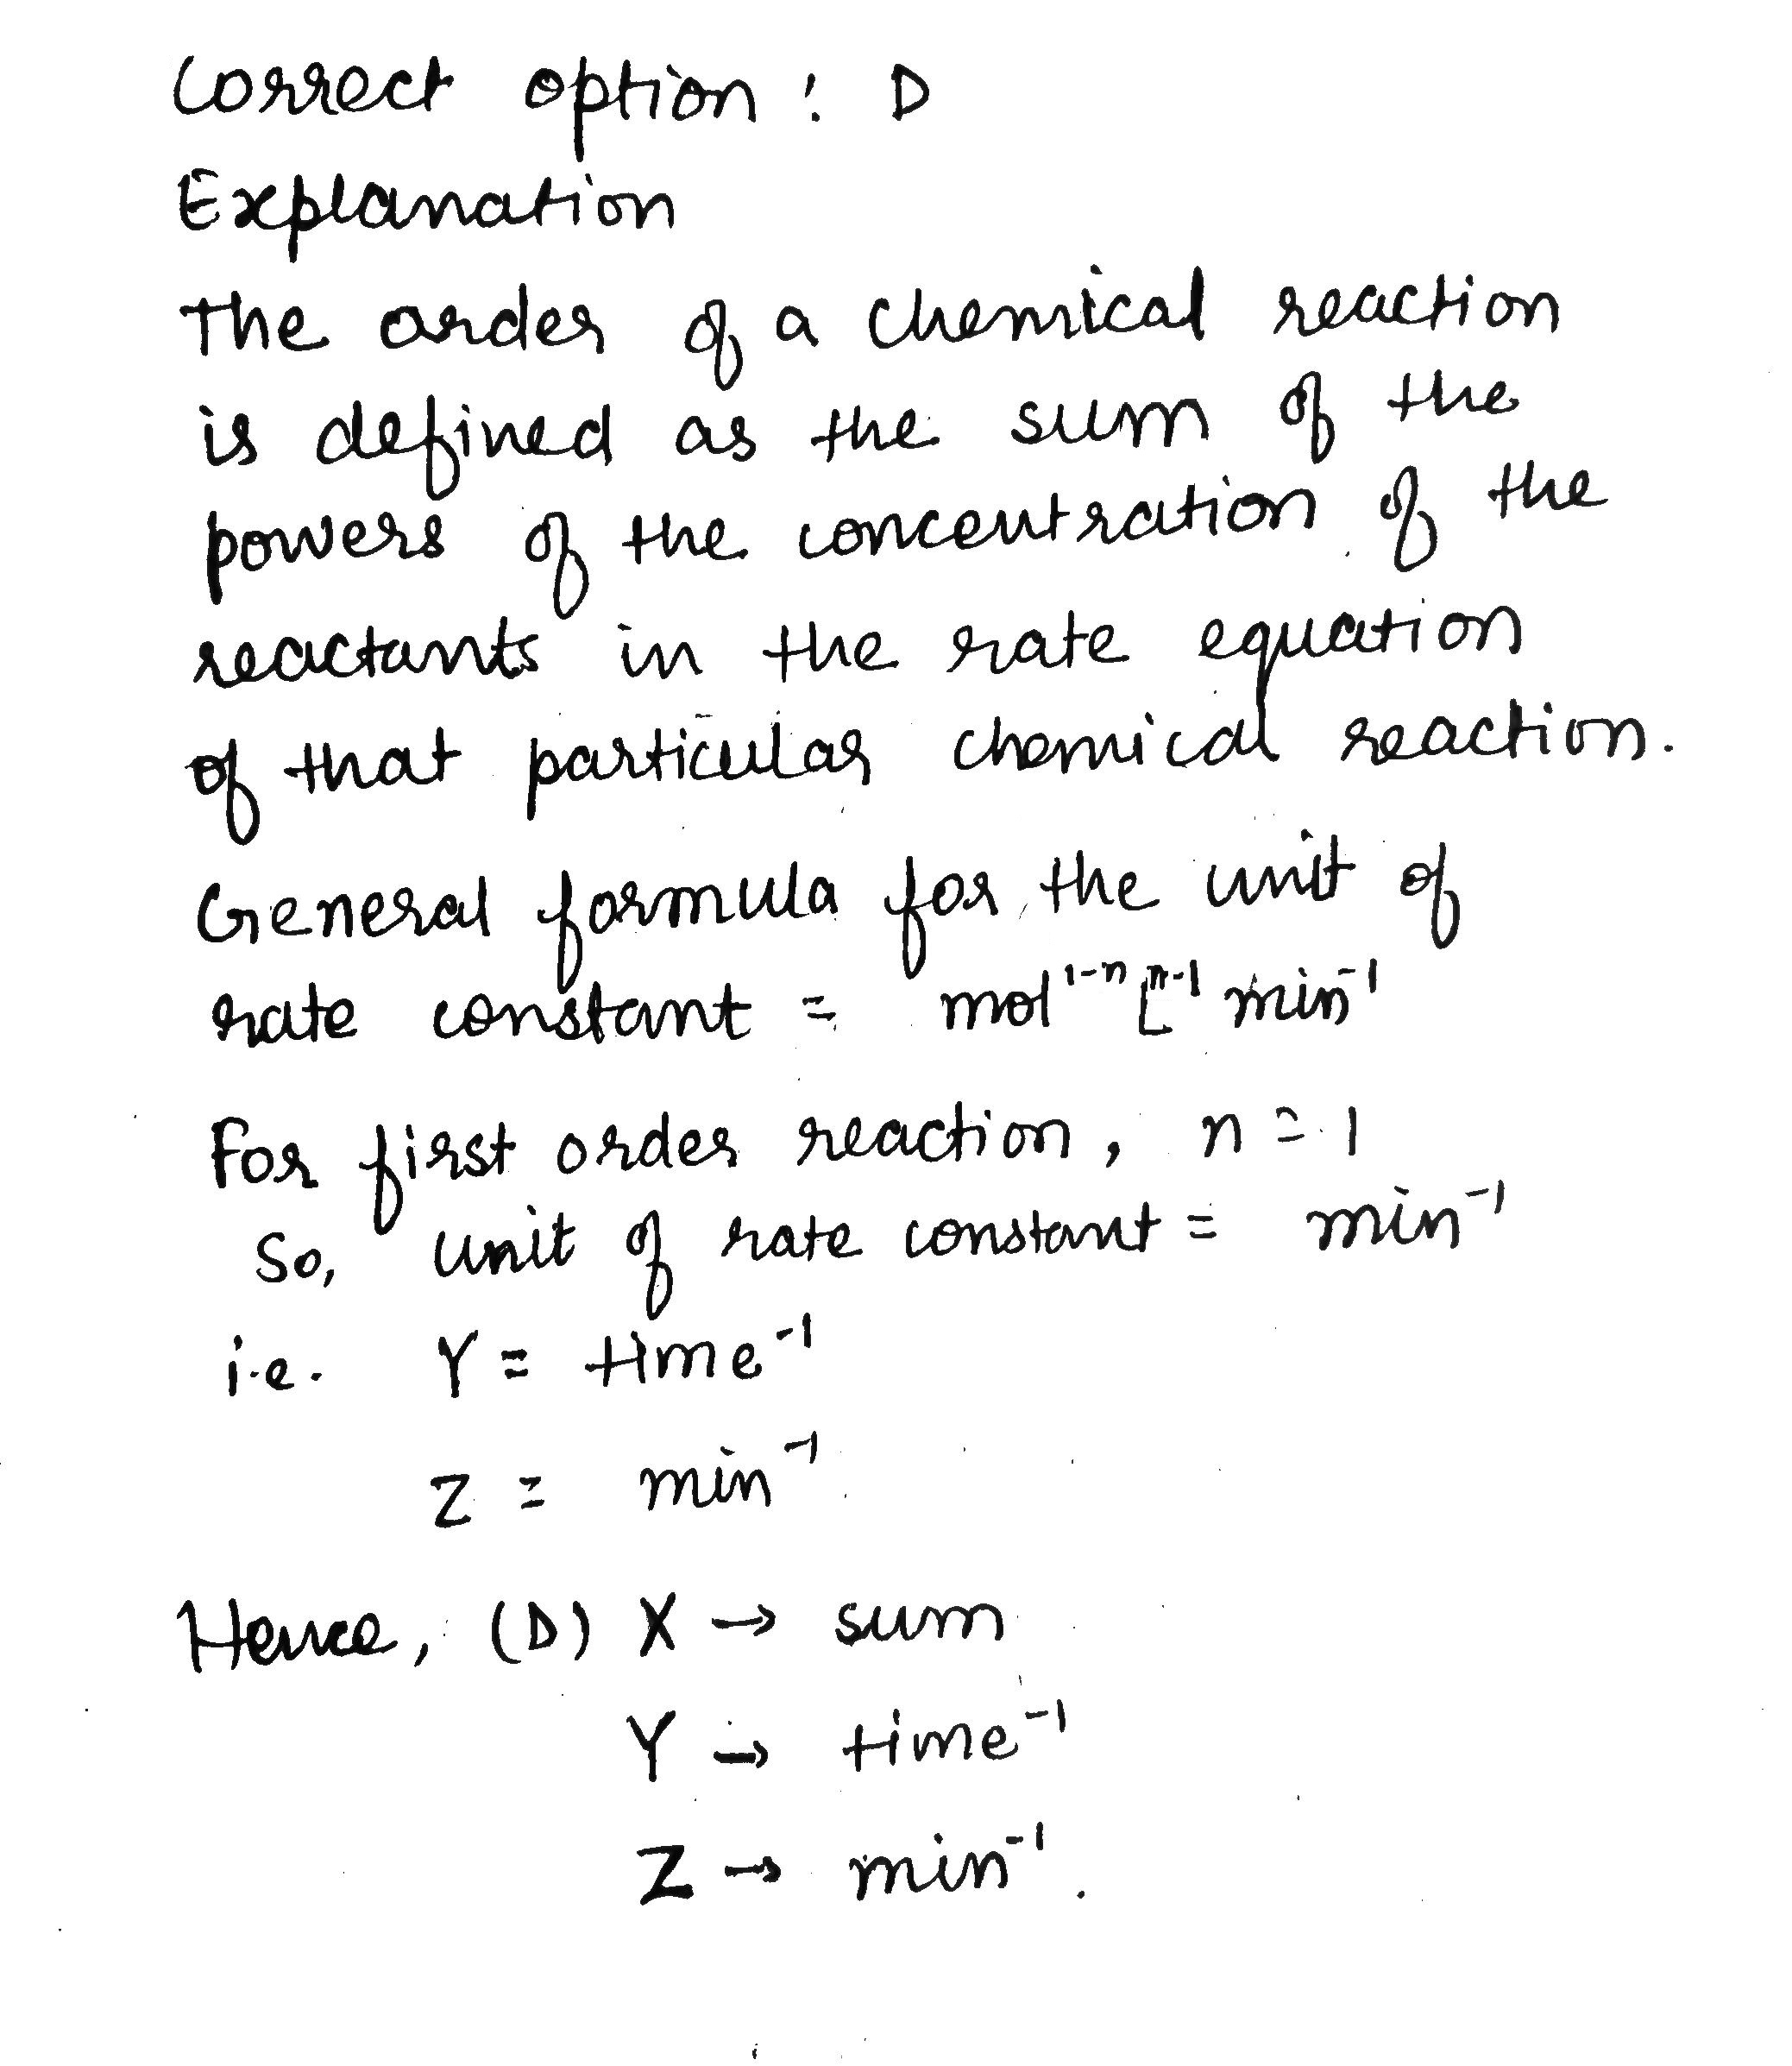 Correct option : D
Explanation
The order of a chemical reaction
is defined as the sum of the
powers of the concentration of the
reactants in the rate equation
of that particular chemical reaction.
General formula for the unit of
rate constant = mol¹⁻ⁿ Lⁿ⁻¹ min⁻¹
For first order reaction, n = 1
So, unit of rate constant = min⁻¹
i.e. Y = time⁻¹
Z = min⁻¹
Hence, (D) X → sum
Y → time⁻¹
Z → min⁻¹.